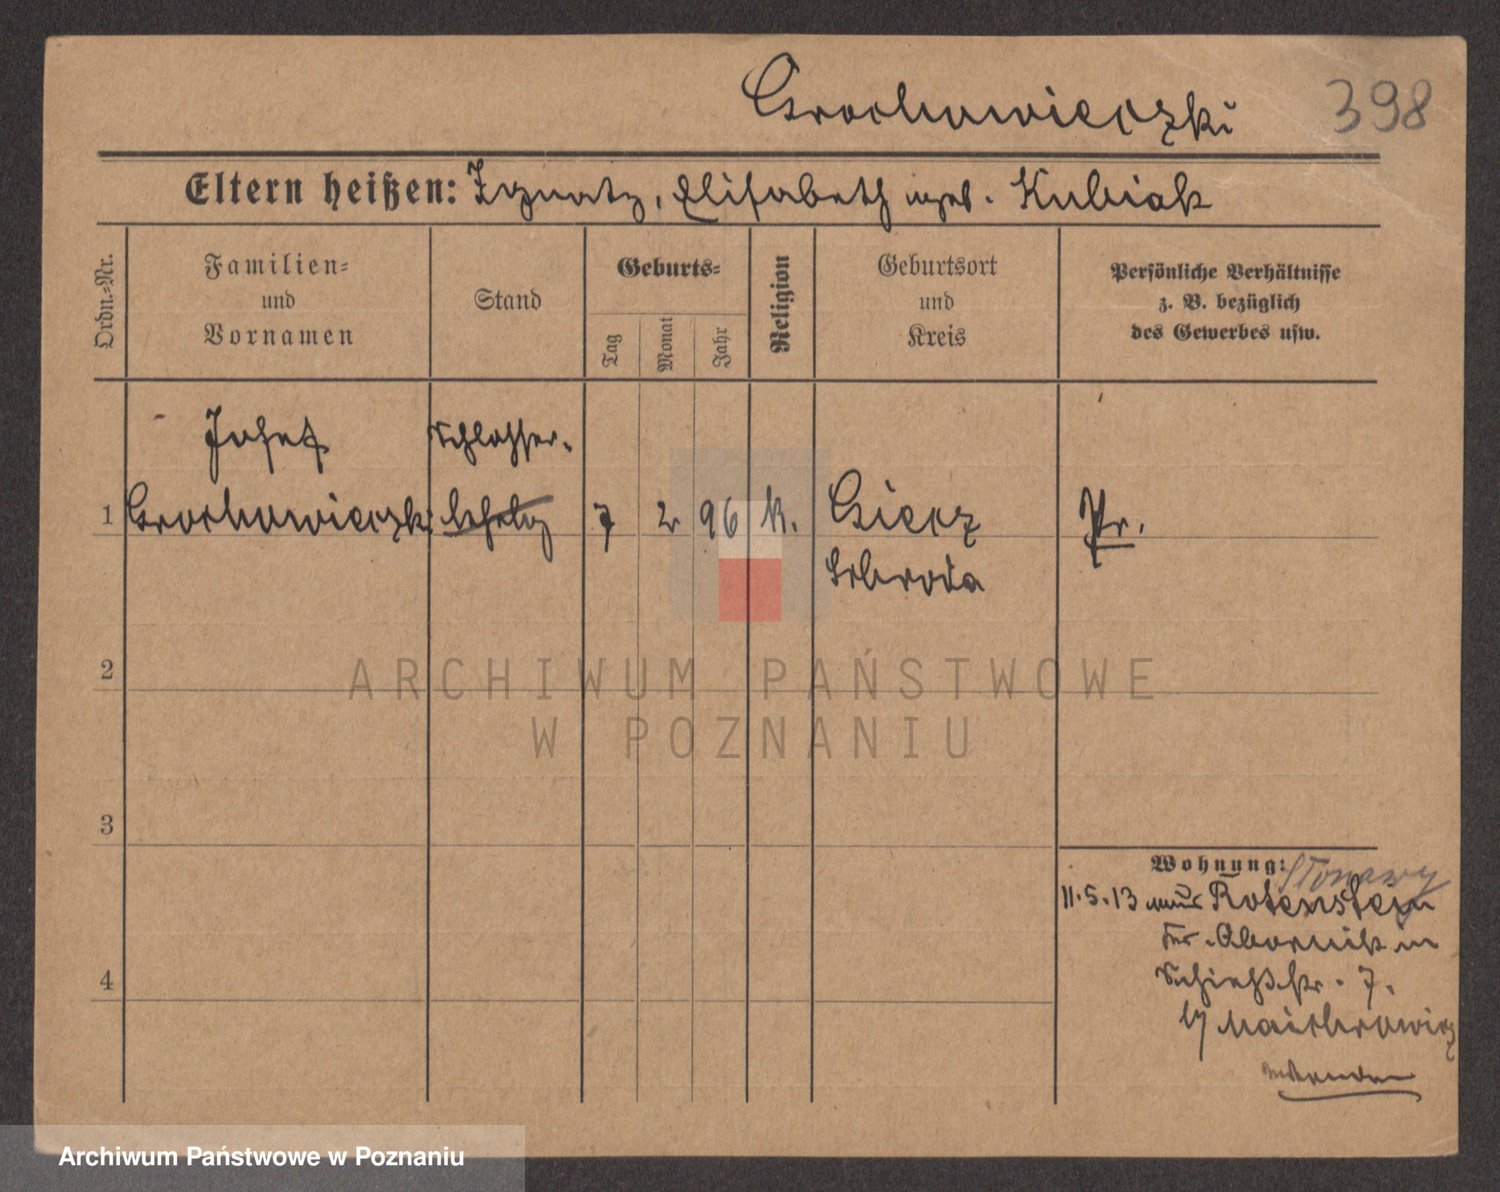 Grochowieczki 398
Eltern heißen: Ignatz, Elisabeth geb. Kubiak
Ordn.=Nr.
Familien=
und
Vornamen
Stand
Geburts=
Tag
Monat
Jahr
Religion
Geburtsort
und
Kreis
Persönliche Verhältnisse
z. B. bezüglich
des Gewerbes usw.
Josef Schlosser-
1 Grochowieczki lehrlg 7 2 96 K. Giecz Pr.
Schroda
2
3
4
Wohnung:
11.5.13 Rotenstein
Kr. Obornik in
Schießstr. 7.
wenden
ARCHIWUM PAŃSTWOWE
W POZNANIU
Archiwum Państwowe w Poznaniu